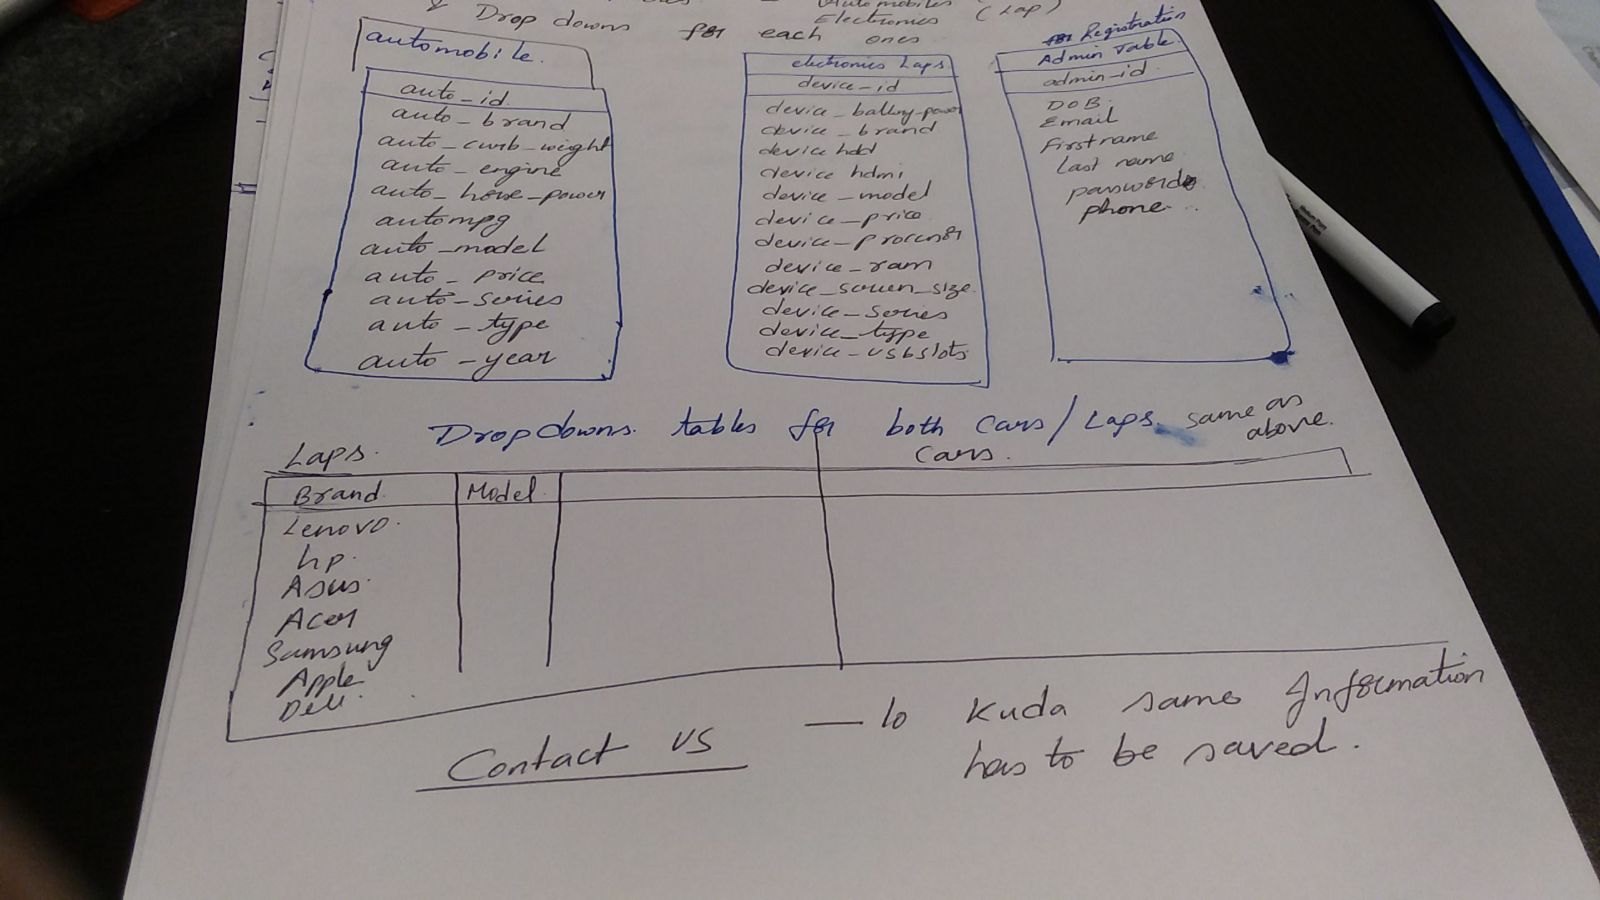 & Drop downs for each ones
Automobiles
Electronics (Lap)
automobile.
auto_id
auto_brand
auto_curb_weight
auto_engine
auto_horse_power
autompg
auto_model
auto_price
auto_series
auto_type
auto_year
electronics Laps
device_id
device_battery_power
device_brand
device hdd
device hdmi
device_model
device_price
device_processor
device_ram
device_screen_size
device_series
device_type
device_usbslots
for Registration
Admin Table.
admin_id
DOB.
Email
First name
Last name
password
phone
Dropdowns tables for both cars/Laps. same as
above.
Laps.
Cars.
Brand Model
Lenovo.
hp.
Asus.
Acer
Samsung
Apple
Dell.
Contact us — lo Kuda same Information
has to be saved.